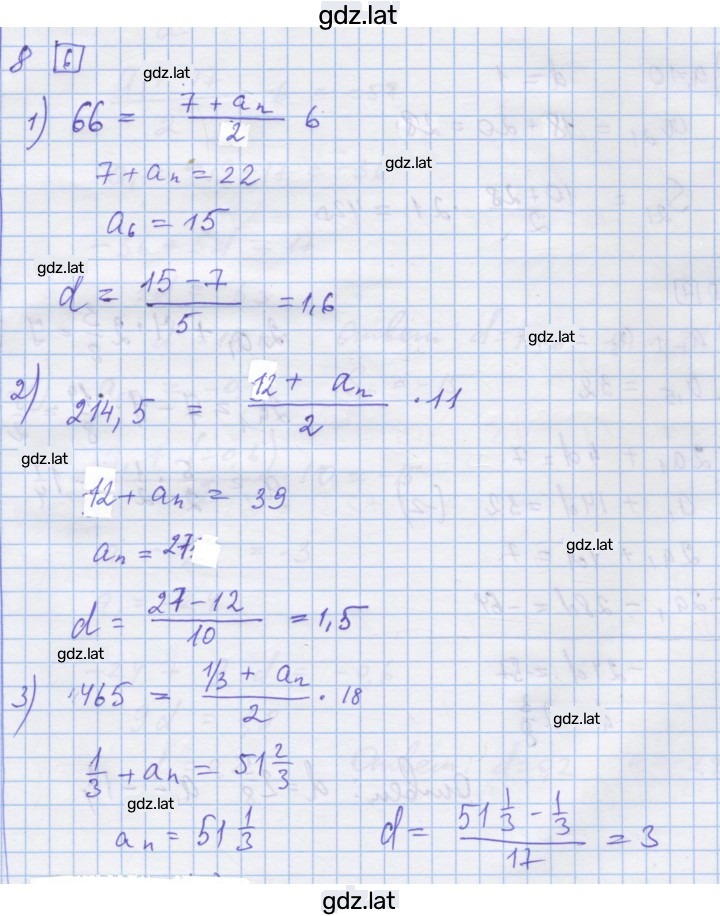 gdz.lat
8 6
gdz.lat
1) 66 = (7 + aₙ)/2 6
gdz.lat
7 + aₙ = 22
a₆ = 15
gdz.lat
d = (15 − 7)/5 = 1,6
gdz.lat
2) 214,5 = (12 + aₙ)/2 · 11
gdz.lat
12 + aₙ = 39
gdz.lat
aₙ = 27
d = (27 − 12)/10 = 1,5
gdz.lat
3) 465 = (1/3 + aₙ)/2 · 18
gdz.lat
1/3 + aₙ = 51 2/3
gdz.lat
aₙ = 51 1/3 d = (51 1/3 − 1/3)/17 = 3
gdz.lat